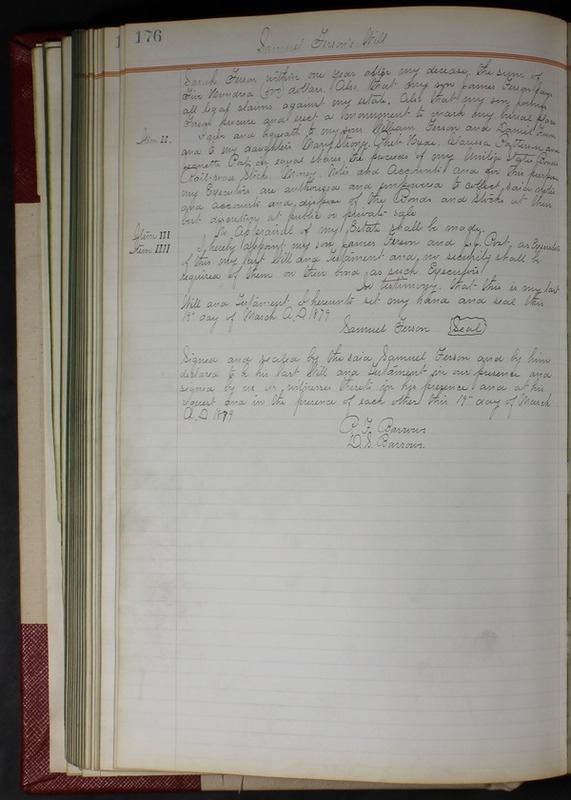 176
Samuel Ferson's Will
Sarah Ferson within one year after my decease, the sum of
Five Hundred (500) dollars. Also that my son James Ferson pay
all legal claims against my estate. Also that my son James
Ferson procure and erect a monument to mark my burial place
Item II. I give and bequeath to my sons William Ferson and Daniel Ferson
and to my daughters Mary Strong, Clarissa Patterson and
Jeanette Post, in equal shares, the proceeds of my United States Bonds
Rail-road Stock, Money, Notes and Accounts and for this purpose
my Executors are authorized and empowered to collect said notes
and accounts and dispose of the Bonds and Stocks at their
best discretion at public or private sale
Item III No Appraisal of my Estate shall be made.
Item IIII I hereby appoint my son James Ferson and Post, as Executors
of this my last Will and Testament and no security shall be
required of them on their bond as such Executors
In testimony, that this is my last
Will and Testament, I hereunto set my hand and seal this
19" day of March A.D. 1879
Samuel Ferson (Seal)
Signed and sealed by the said Samuel Ferson and by him
declared to be his last Will and Testament in our presence and
signed by us as witnesses thereto in his presence and at his
request and in the presence of each other this 19" day of March
A.D 1879
Barrows
D. S. Barrows.